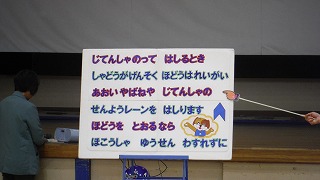 じてんしゃのって はしるとき
しゃどうがげんそく ほどうはれいがい
あおいやばねや じてんしゃの
せんようレーンを はしります
ほどうを とおるなら
ほこうしゃ ゆうせん わすれずに